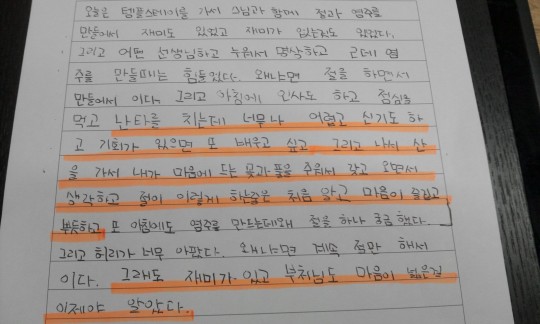 오늘은 템플스테이를 가서 스님과 함께 절과 염주를
만들어서 재미도 있었고 재미가 없는것도 있었다.
그리고 어떤 선생님하고 누워서 명상하고 근데 염
주를 만들때는 힘들었다. 왜냐면 절을 하면서
만들어서 이다. 그리고 아침에 인사도 하고 점심을
먹고 난타를 치는데 너무나 어렵고 신기도 하
고 기회가 있으면 또 배우고 싶고 그리고 나서 산
을 가서 내가 마음에 드는 꽃과 풀을 주워서 갖고 오면서
생각하고 절이 이렇게 하는줄은 처음 알고 마음이 즐겁고
뿌듯하고 또 아침에도 염주를 만드는데 왜 절을 하나 궁금 했다.
그리고 허리가 너무 아팠다. 왜냐면 계속 절만 해서
이다. 그래도 재미가 있고 부처님도 마음이 넓은걸
이제야 알았다.